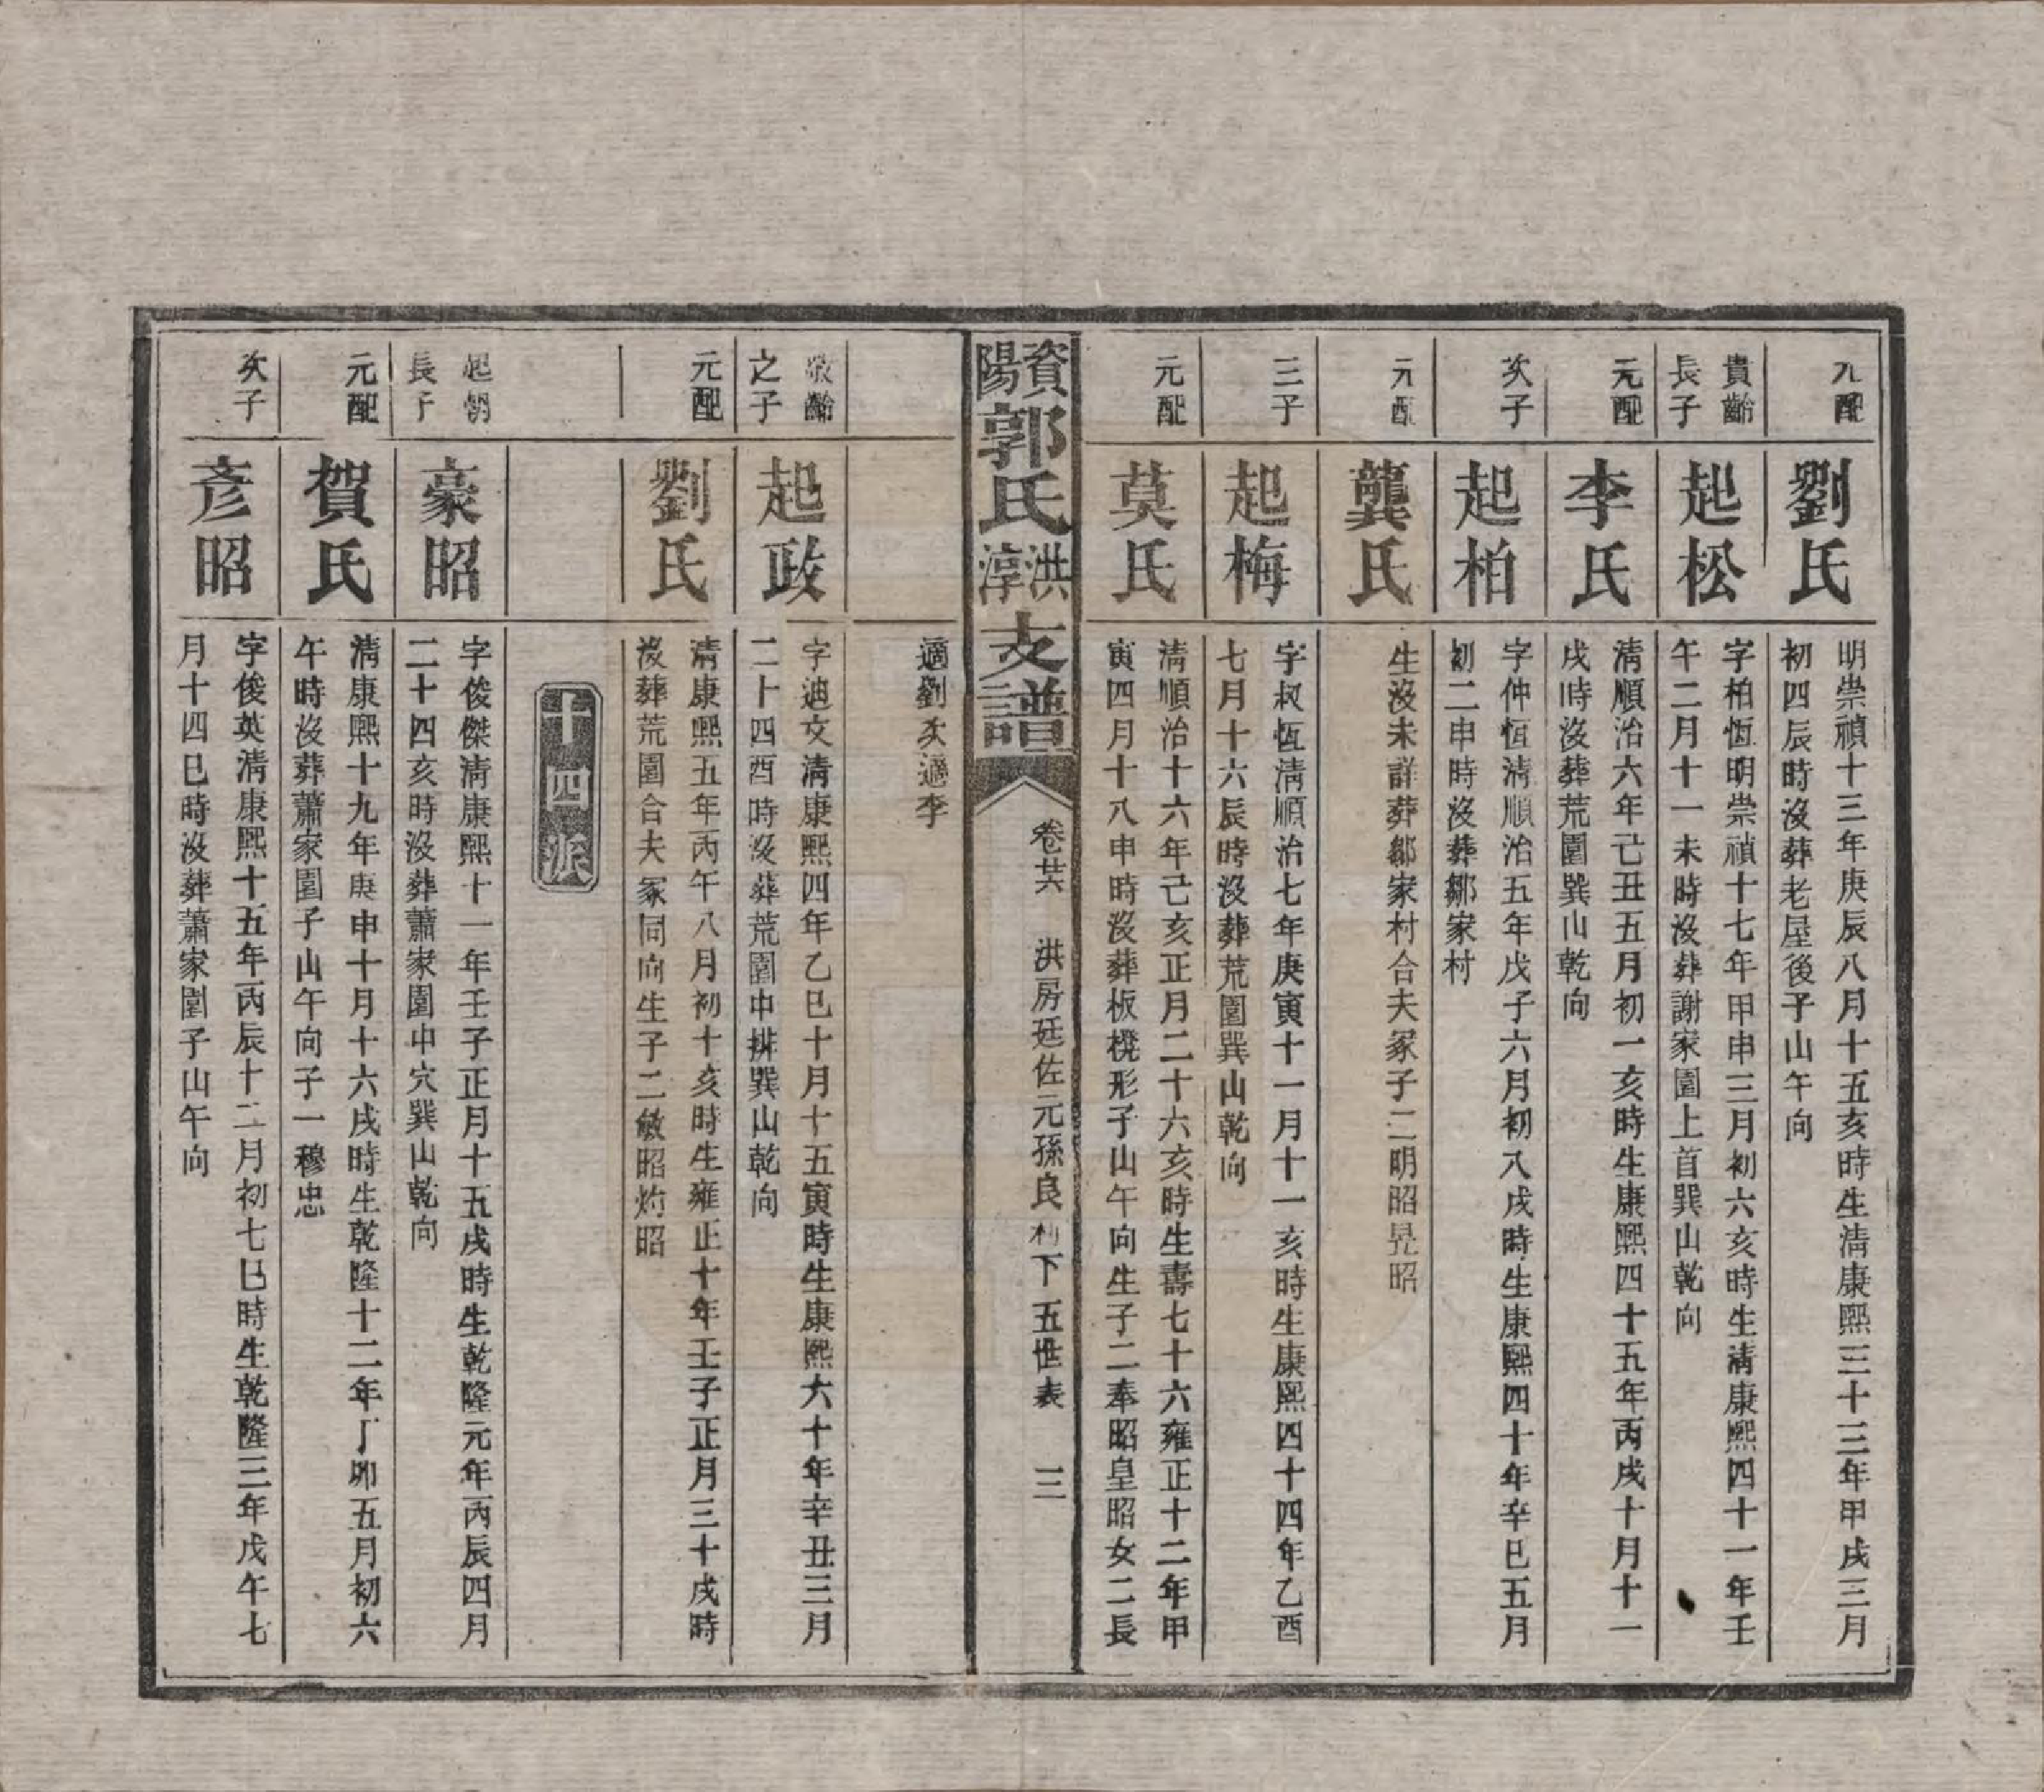 元配
劉氏
明崇禎十三年庚辰八月十五亥時生清康熙三十三年甲戌三月
初四辰時沒葬老屋後子山午向
貴齡
長子
起松
字柏恆明崇禎十七年甲申三月初六亥時生清康熙四十一年壬
午二月十一未時沒葬謝家園上首巽山乾向
元配
李氏
清順治六年己丑五月初一亥時生康熙四十五年丙戌十月十一
戌時沒葬荒園巽山乾向
次子
起柏
字仲恆清順治五年戊子六月初八戌時生康熙四十年辛巳五月
初二申時沒葬鄒家村
元配
龔氏
生沒未詳葬鄒家村合夫冢子二明昭晃昭
三子
起梅
字叔恆清順治七年庚寅十一月十一亥時生康熙四十四年乙酉
七月十六辰時沒葬荒園巽山乾向
元配
莫氏
清順治十六年己亥正月二十六亥時生壽七十六雍正十二年甲
寅四月十八申時沒葬板櫈形子山午向生子二奉昭皇昭女二長
資陽郭氏洪淳支譜
卷廿六
洪房廷佐元孫良 下五世表
三
適劉次適李
敬齡
之子
起政
字迪文清康熙四年乙巳十月十五寅時生康熙六十年辛丑三月
二十四酉時沒葬荒園中排巽山乾向
元配
劉氏
清康熙五年丙午八月初十亥時生雍正十年壬子正月三十戌時
沒葬荒園合夫冢同向生子二敏昭灼昭
十四派
起明
長子
豪昭
字俊傑清康熙十一年壬子正月十五戌時生乾隆元年丙辰四月
二十四亥時沒葬蕭家園中穴巽山乾向
元配
賀氏
清康熙十九年庚申十月十六戌時生乾隆十二年丁卯五月初六
午時沒葬蕭家園子山午向子一穆忠
次子
彥昭
字俊英清康熙十五年丙辰十二月初七巳時生乾隆三年戊午七
月十四巳時沒葬蕭家園子山午向